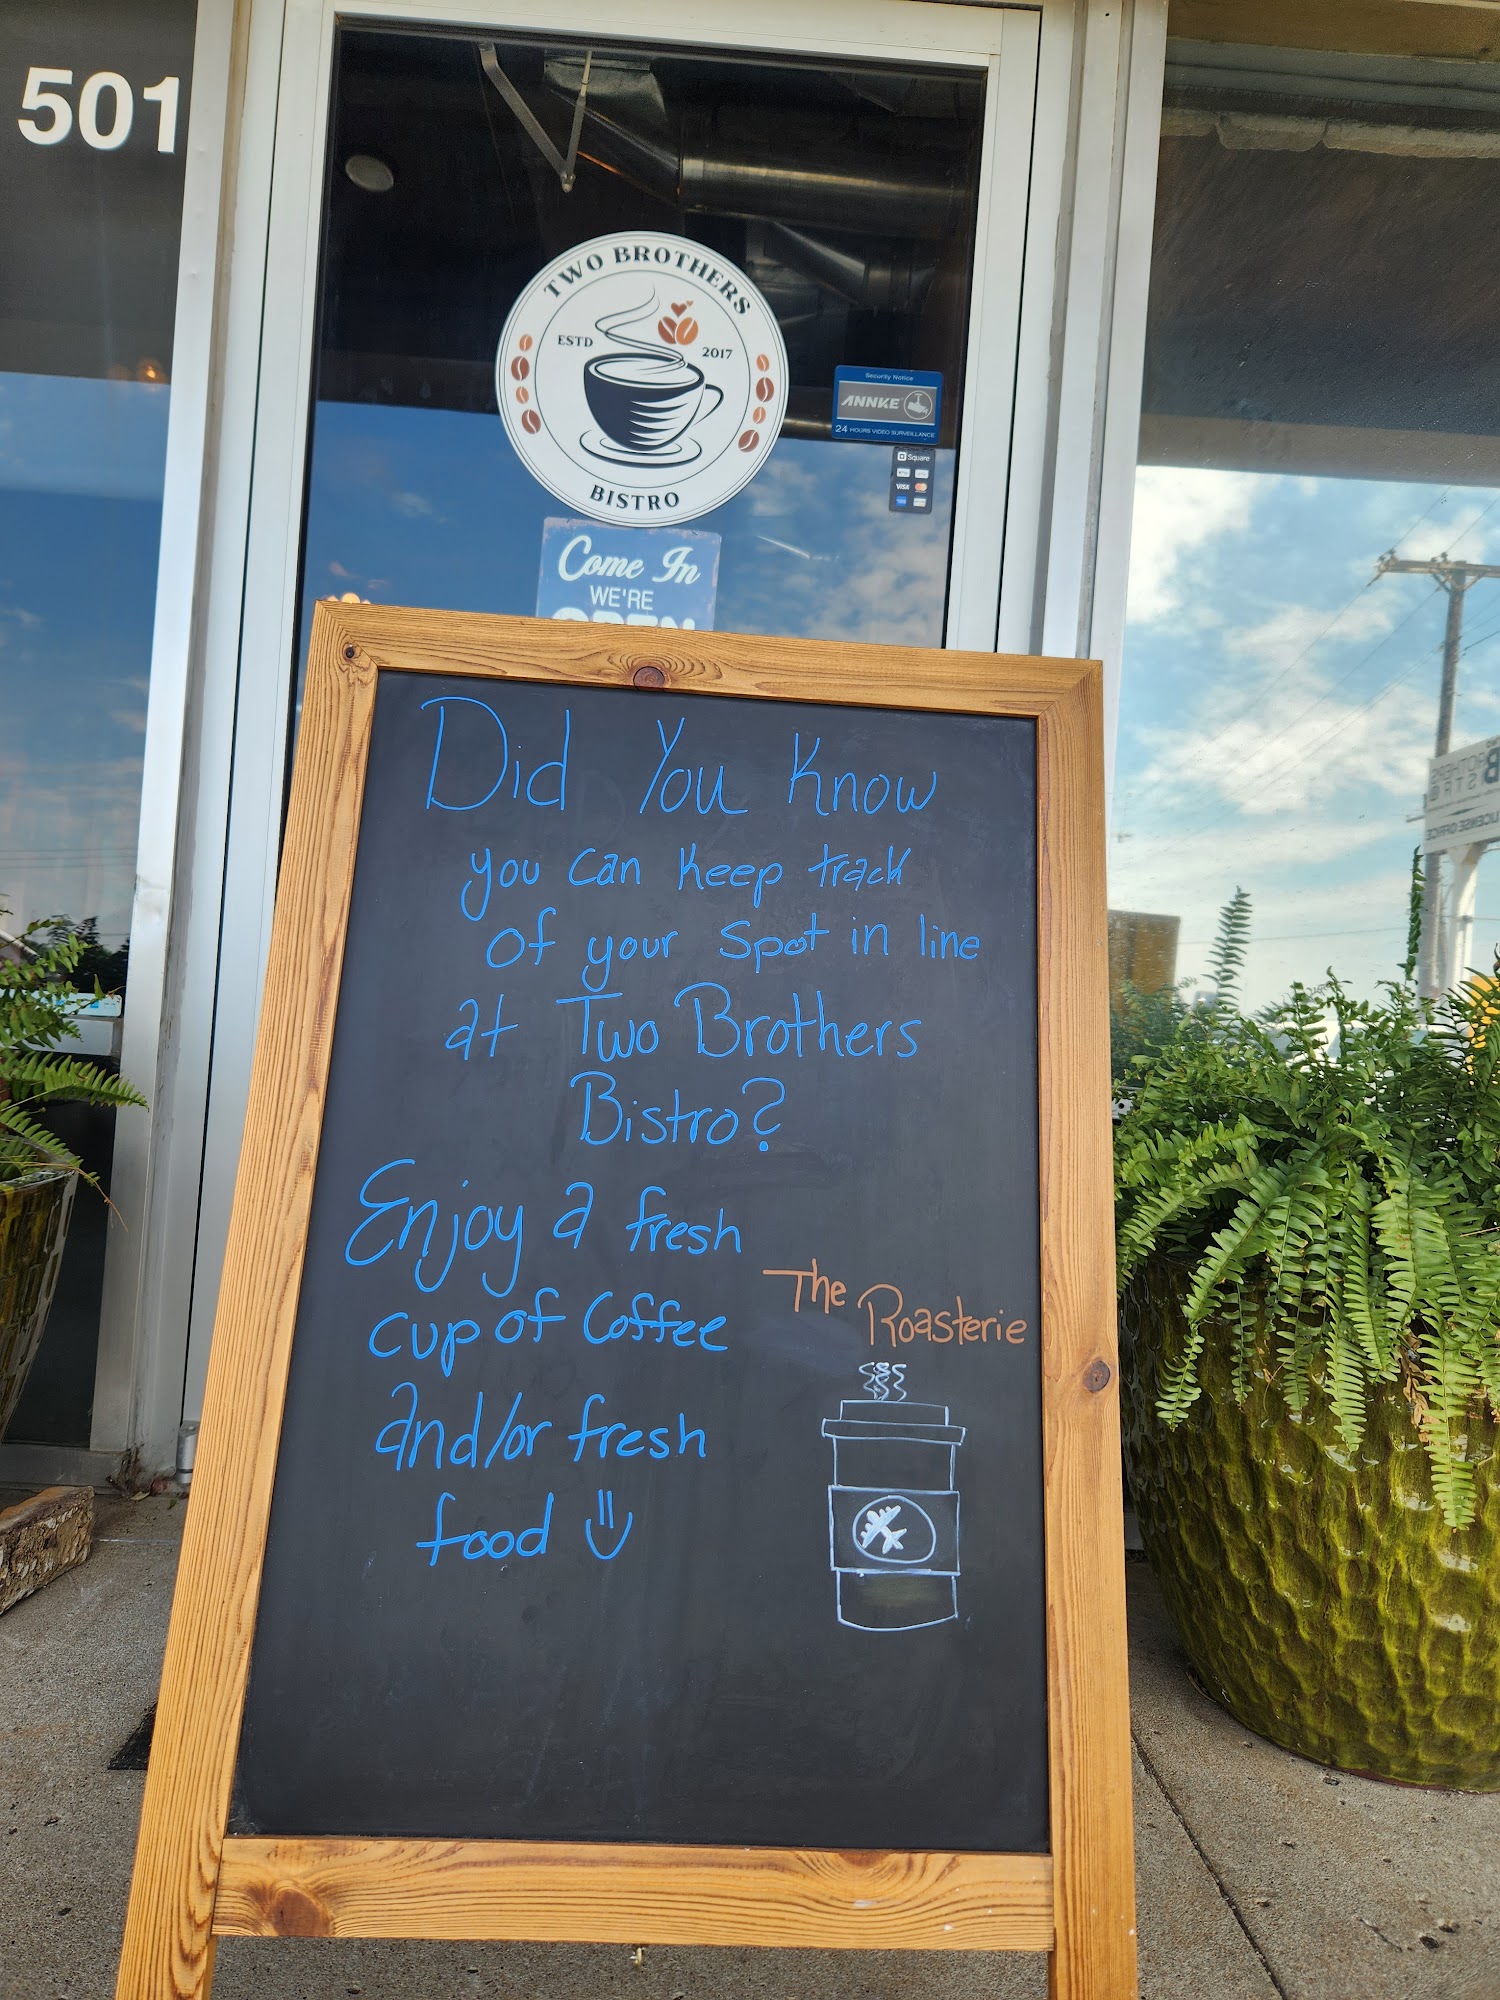 501
TWO BROTHERS
ESTD 2017
BISTRO
Security Notice
ANNKE
24 HOURS VIDEO SURVEILLANCE
Square
VISA
Come In
WE'RE
OPEN
Did You Know
you can keep track
of your spot in line
at Two Brothers
Bistro?
Enjoy a fresh
cup of Coffee
and/or fresh
food
The Roasterie
BROTHERS
BISTRO
LICENSE OFFICE